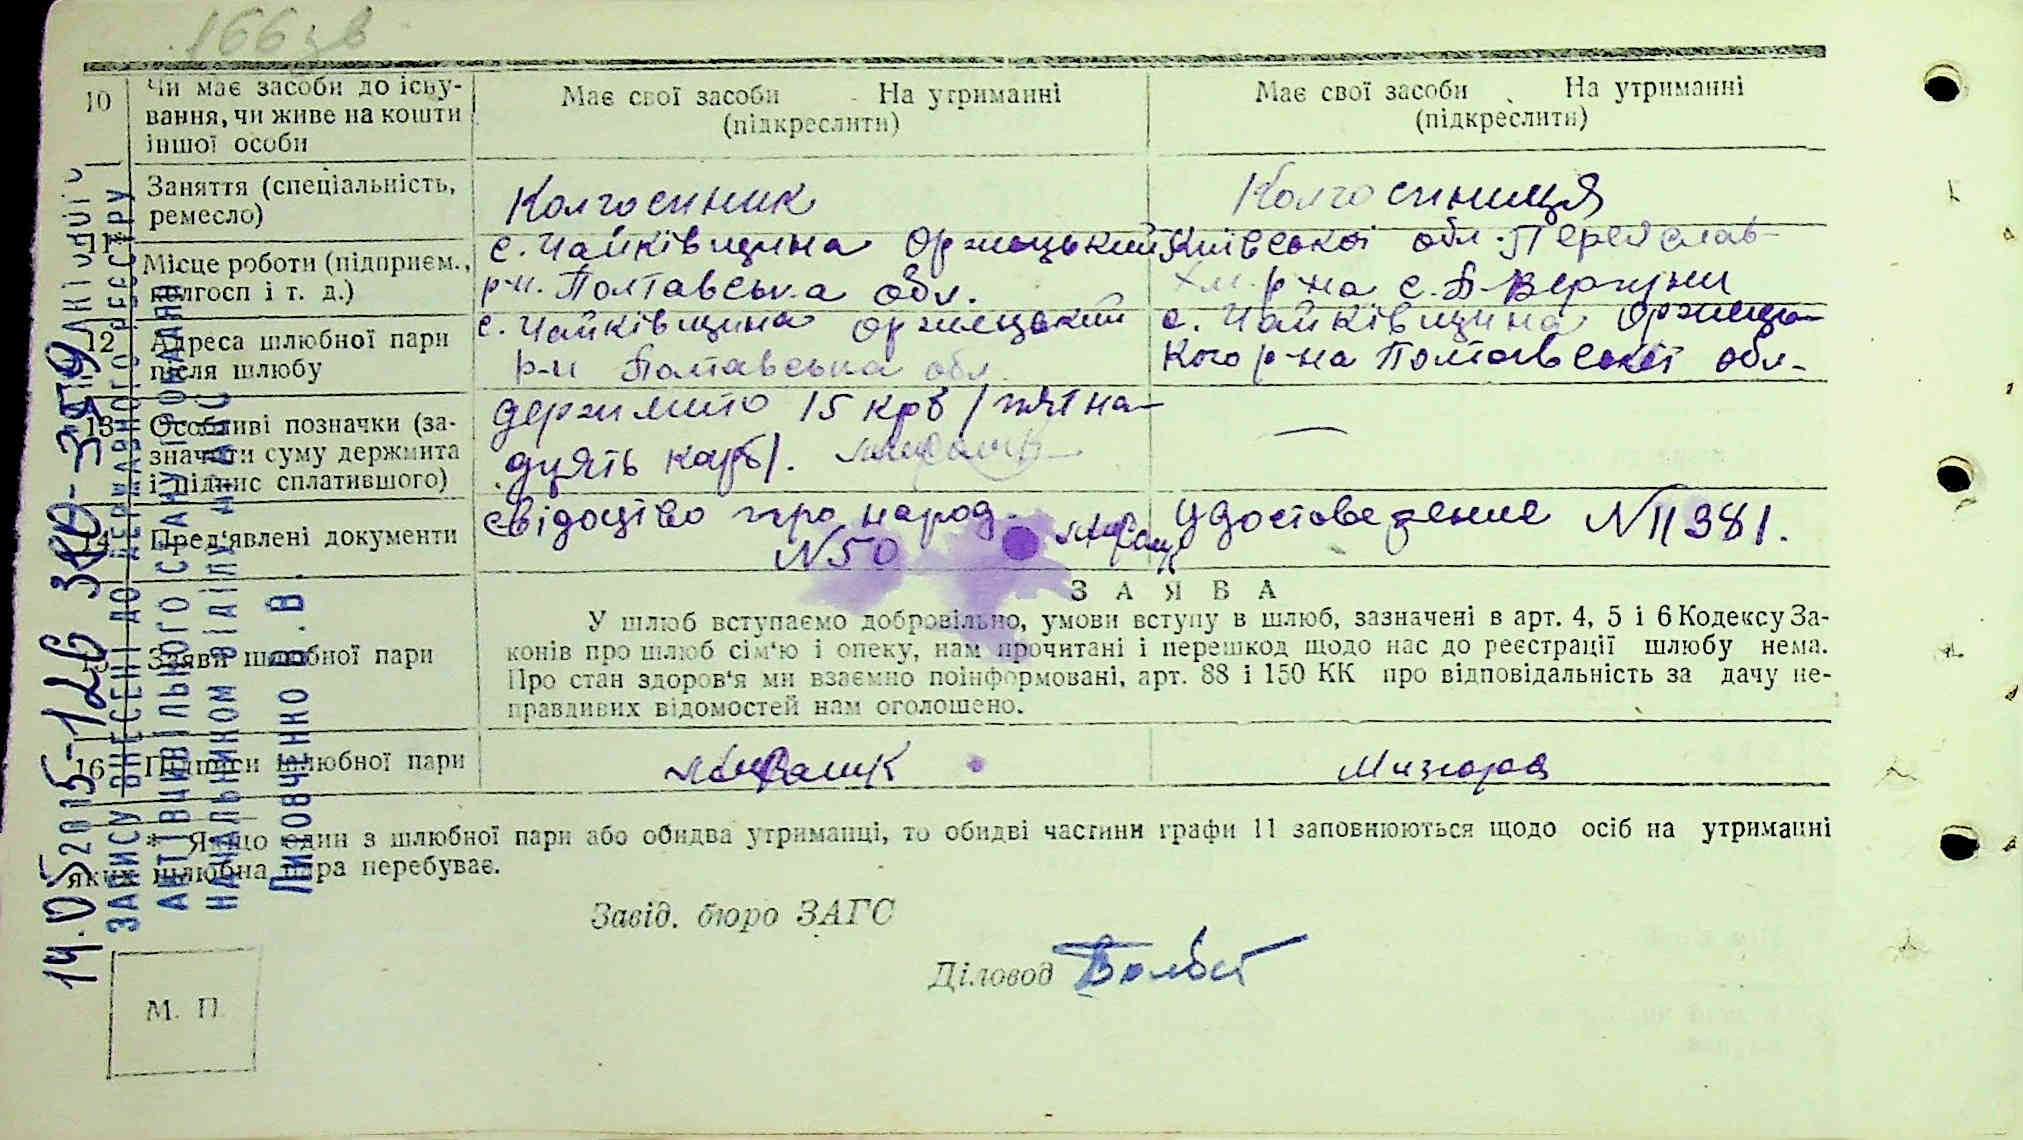 166 зв
10 Чи має засоби до існу-
вання, чи живе на кошти
іншої особи
Має свої засоби На утриманні
(підкреслити)
Має свої засоби На утриманні
(підкреслити)
11* Заняття (спеціальність,
ремесло)
Колгоспник
Колгоспниця
Місце роботи (підприєм.,
колгосп і т. д.)
с. Чайківщина Оржицький
р-н. Полтавська обл.
Київської обл. Переяслав
Хм. р-на с. В-Вергуни
12 Адреса шлюбної пари
після шлюбу
с. Чайківщина Оржицький
р-н Полтавська обл.
с. Чайківщина Оржиць-
кого р-на Полтавської обл.
13 Особливі позначки (за-
значати суму держмита
і підпис сплатившого)
держмито 15 крб / п'ятна-
дцять карб/.
—
14 Пред'явлені документи
свідоцтво про народ.
N 50
Удостоверение N II 381.
15 Заяви шлюбної пари
ЗАЯВА
У шлюб вступаємо добровільно, умови вступу в шлюб, зазначені в арт. 4, 5 і 6 Кодексу За-
конів про шлюб сім'ю і опеку, нам прочитані і перешкод щодо нас до реєстрації шлюбу нема.
Про стан здоров'я ми взаємно поінформовані, арт. 88 і 150 КК про відповідальність за дачу не-
правдивих відомостей нам оголошено.
16 Підписи шлюбної пари
* Якщо один з шлюбної пари або обидва утриманці, то обидві частини графи 11 заповнюються щодо осіб на утриманні
яких шлюбна пара перебуває.
Завід. бюро ЗАГС
Діловод
М. П.
14.05 2015-126
ЗАПИСУ ВНЕСЕНІ ДО ДЕРЖАВНОГО РЕЄСТРУ
АКТІВ ЦИВІЛЬНОГО СТАНУ ГРОМАДЯН
НАЧАЛЬНИКОМ ВІДДІЛУ ДРАЦС